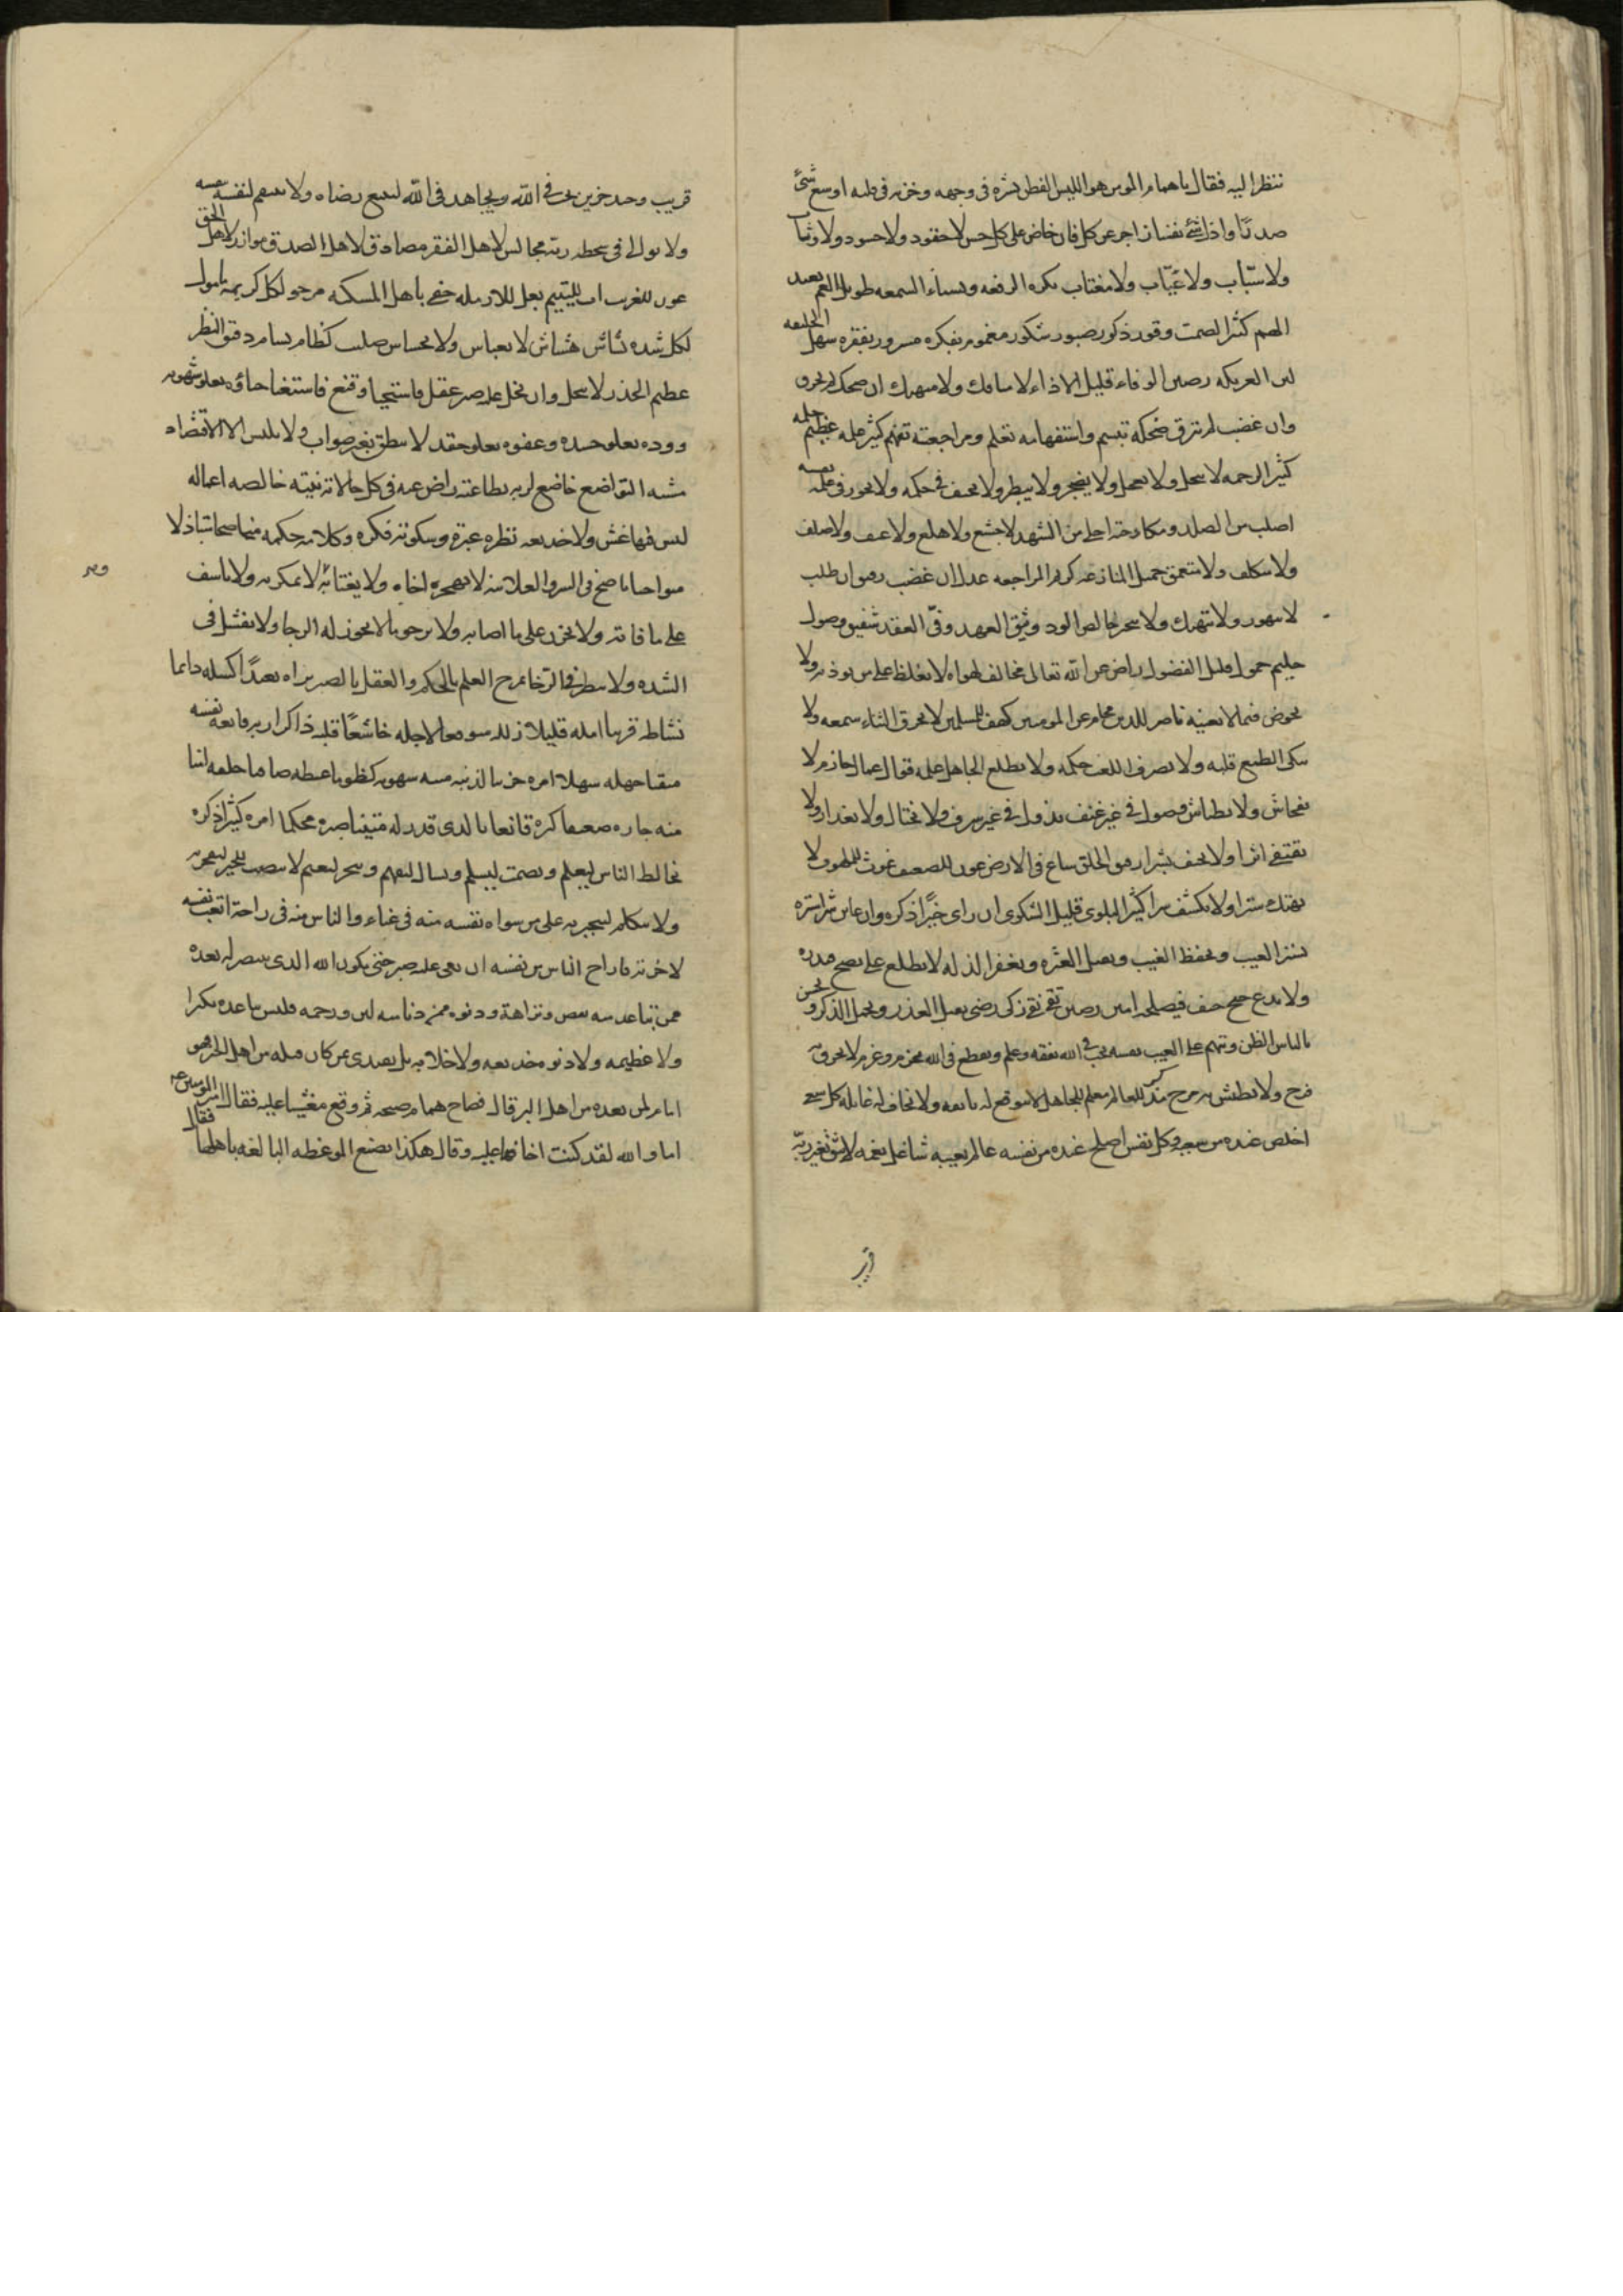 ننظر اليه فقال يا همام المومن هو الليس الفطن بشره فى وجهه وحزنه فى قلبه اوسع شئ
صدرًا واذل شئ نفسا زاجر عن كل فان حاض على كل حسن لا حقود ولا حسود ولا وثاب
ولا سبّاب ولا عيّاب ولا مغتاب يكره الرفعه ويسناء السمعه طويل الغم بعيد
الهم كثير الصمت وقور ذكور صبور شكور مغموم بفكره مسرور بفقره سهل الخليقه
لين العريكه رصين الوفاء قليل الاذاء لا متافك ولا متهتك ان ضحك لم يخرق
وان غضب لم ينزق ضحكه تبسم واستفهامه تعلم ومراجعته تفهم كثير علمه عظيم حلمه
كثير الرحمه لا يبخل ولا يعجل ولا يضجر ولا يبطر ولا يحيف فى حكمه ولا يجور فى علمه نفسه
اصلب من الصلد ومكادحته احلى من الشهد لا جشع ولا هلع ولا عنف ولا صلف
ولا متكلف ولا متعمق جميل المنازعه كريم المراجعه عدل ان غضب رفيق ان طلب
لا متهور ولا متهتك ولا متجبر خالص الود وثيق العهد وفىّ العقد شفيق وصول
حليم حمول قليل الفضول راض عن الله تعالى مخالف لهواه لا يغلظ على من يوذيه ولا
يخوض فيما لا يعنيه ناصر للدين محام عن المومنين كهف للمسلمين لا يخرق الثناء سمعه ولا
ينكى الطمع قلبه ولا يصرف اللعب حكمه ولا يطلع الجاهل علمه قوال عمال حازم لا
بفحاش ولا بطياش وصول فى غير عنف بذول فى غير سرف ولا بختال ولا بغدار ولا
يقتفى اثرا ولا يحيف بشرا رفيق الخلق ساع فى الارض عون للضعيف غوث للملهوف لا
يهتك سترا ولا يكشف سرا كثير البلوى قليل الشكوى ان راى خيرًا ذكره وان عاين شرا ستره
يستر العيب ويحفظ الغيب ويقيل العثره ويغفر الزله لا يطلع على نصح فيذره
ولا يدع جنح حيف فيصلحه امين رصين تقى نقى زكى رضى يقبل العذر ويجمل الذكر ويحسن
بالناس الظن ويتهم على العيب نفسه يحب فى الله بفقه وعلم ويقطع فى الله بحزم وعزم لا يخرق به
فرح ولا يطيش به مرح مذكر للعالم معلم للجاهل لا يتوقع له بايقه ولا يخاف له غايله كل سعى
اخلص عنده من سعيه وكل نفس اصلح عنده من نفسه عالم بعيبه شاغل بغمه لا يثق بغير ربه
قريب
قريب وحيد حزين يحب فى الله ويجاهد فى الله ليتبع رضاه ولا ينتقم لنفسه بنفسه
ولا يوالى فى سخط ربه مجالس لاهل الفقر مصادق لاهل الصدق موازر لاهل الحق
عون للغريب اب لليتيم بعل للارمله حفى باهل المسكنه مرجو لكل كريهه مامول
لكل شده بشاش هشاش لا بعباس ولا بجساس صليب كظام بسام دقيق النظر
عظيم الحذر لا يبخل وان بخل عليه صبر عقل فاستحيا وقنع فاستغنا حياؤه يعلو شهوته
ووده يعلو حسده وعفوه يعلو حقده لا ينطق بغير صواب ولا يلبس الا الاقتصاد
مشيه التواضع خاضع لربه بطاعته راض عنه فى كل حالاته نيته خالصه اعماله
ليس فيها غش ولا خديعه نظره عبرة وسكوته فكره وكلامه حكمه مناصحا متباذلا
متواخيا ناصح فى السر والعلانيه لا يهجر اخاه ولا يغتابه لا يمكر به ولا ياسف
على ما فاته ولا يحزن على ما اصابه ولا يرجو ما لا يجوز له الرجا ولا يفشل فى
الشده ولا يبطر فى الرخا يمزج العلم بالحلم والعقل بالصبر تراه بعيدًا كسله دايما
نشاطه قريبا امله قليلا زلله متوقعا لاجله خاشعًا قلبه ذاكرا ربه قانعه نفسه
منفيا جهله سهلا امره حزينا لذنبه ميته شهوته كظوما غيظه صافيا خلقه امنا
منه جاره ضعيفا كبره قانعا بالذى قدر له متينا صبره محكما امره كثيرا ذكره
يخالط الناس ليعلم ويصمت ليسلم ويسال ليفهم ويتجر ليغنم لا ينصت للخير ليفجر به
ولا يتكلم ليتجبر به على من سواه نفسه منه فى عناء والناس منه فى راحة اتعب نفسه
لاخرته فاراح الناس من نفسه ان بغى عليه صبر حتى يكون الله الذى ينتصر له بعده
ممن تباعد منه بغض ونزاهة ودنوه ممن دنا منه لين ورحمه فليس تباعده تكبرا
ولا عظيمه ولا دنوه خديعه ولا خلابه بل يقتدى بمن كان قبله من اهل الخير فهو
امام لمن بعده من اهل البر قال فصاح همام صيحه ثم وقع مغشيا عليه فقال امير المومنين عه
اما والله لقد كنت اخافها عليه وقال هكذا يصنع الموعظه البالغه باهلها فقال